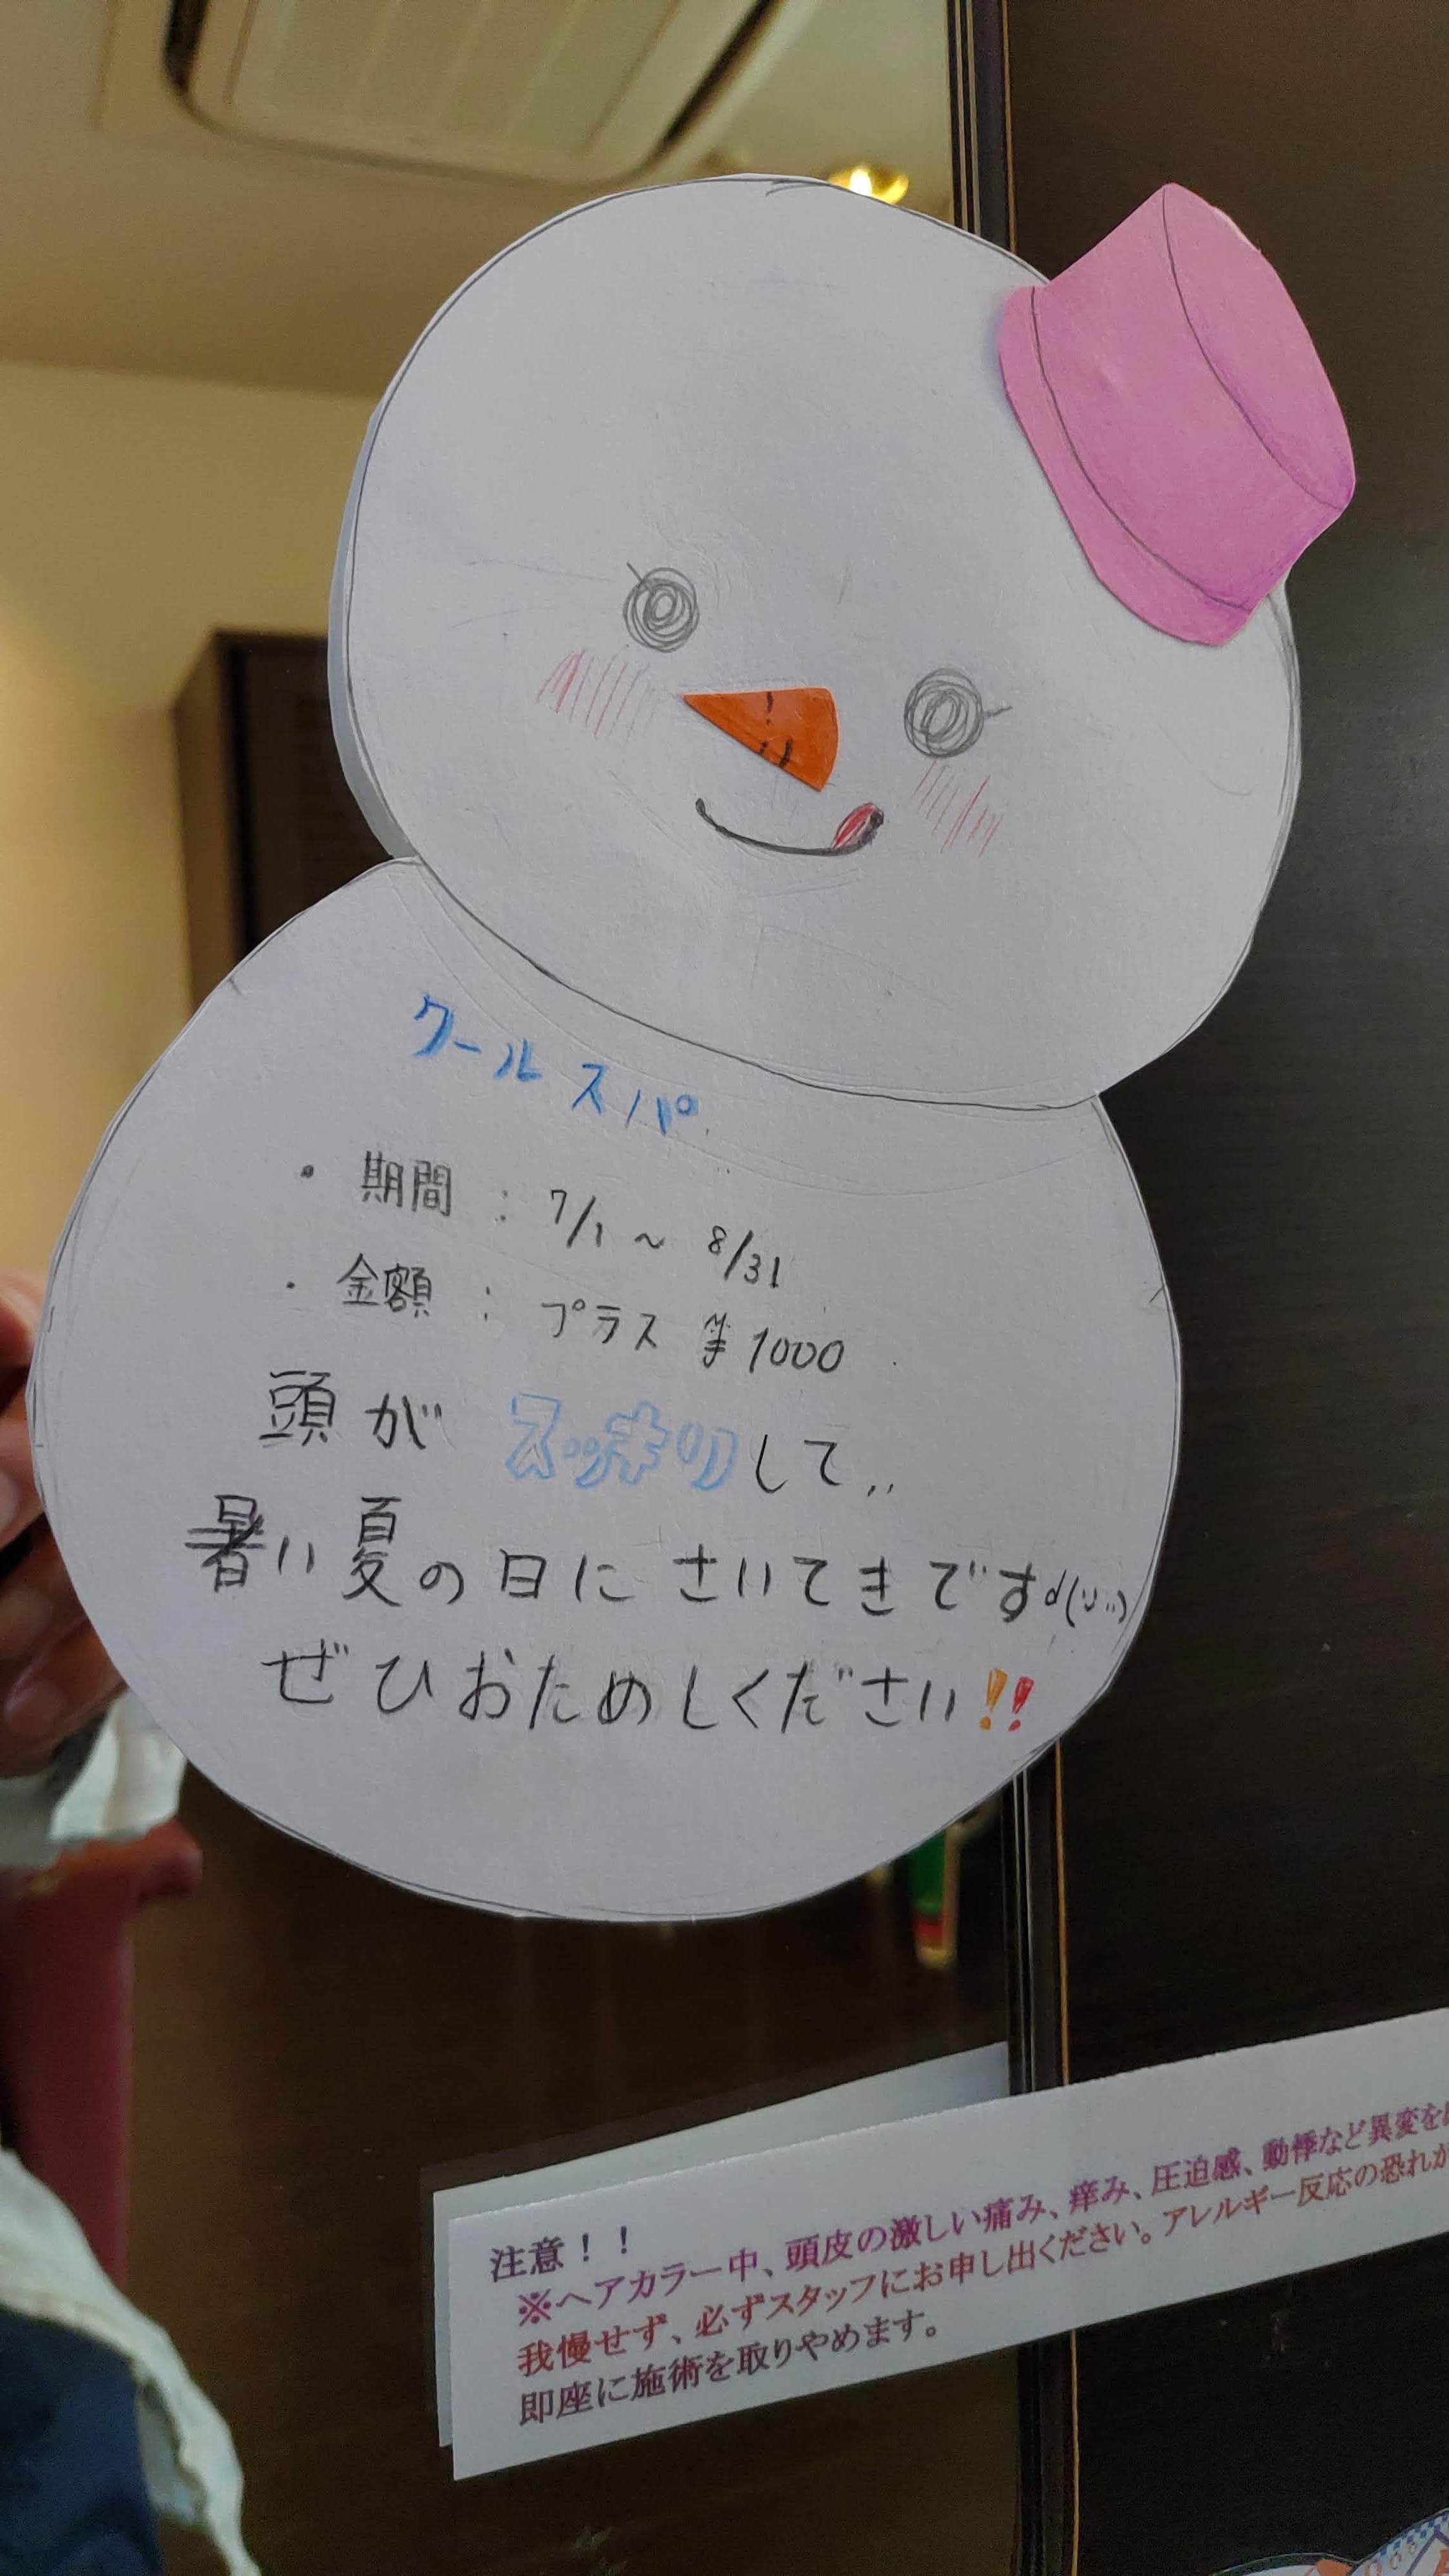 クールスパ
・期間：7/1～8/31
・金額：プラス¥1000
頭がスッキリして..
暑い夏の日にさいてきです
ぜひおためしください!!
注意！！
※ヘアカラー中、頭皮の激しい痛み、痒み、圧迫感、動悸など異変を
我慢せず、必ずスタッフにお申し出ください。アレルギー反応の恐れが
即座に施術を取りやめます。